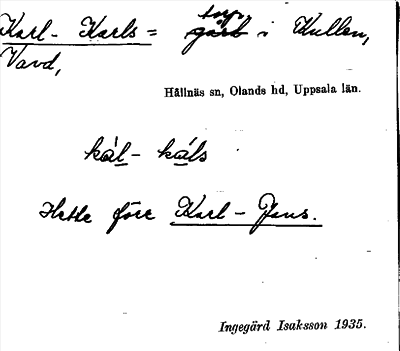 Karl-Karls = torp i Kullen,
Vavd,
Hållnäs sn, Olands hd, Uppsala län.
kál-káls
Hette förr Karl-Jans.
Ingegärd Isaksson 1935.